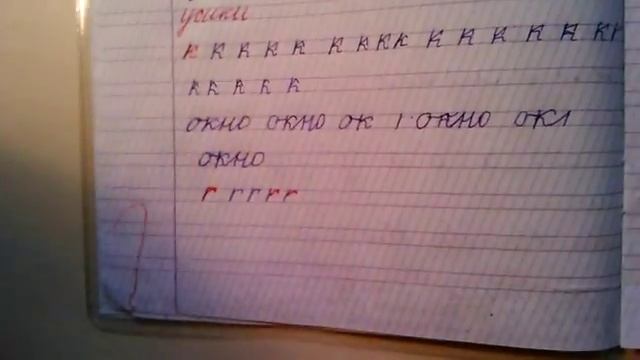 усики
к к к к к к к к к к к к к к кк
к к к к к
окно окно ок окно ок
окно
г г г г г